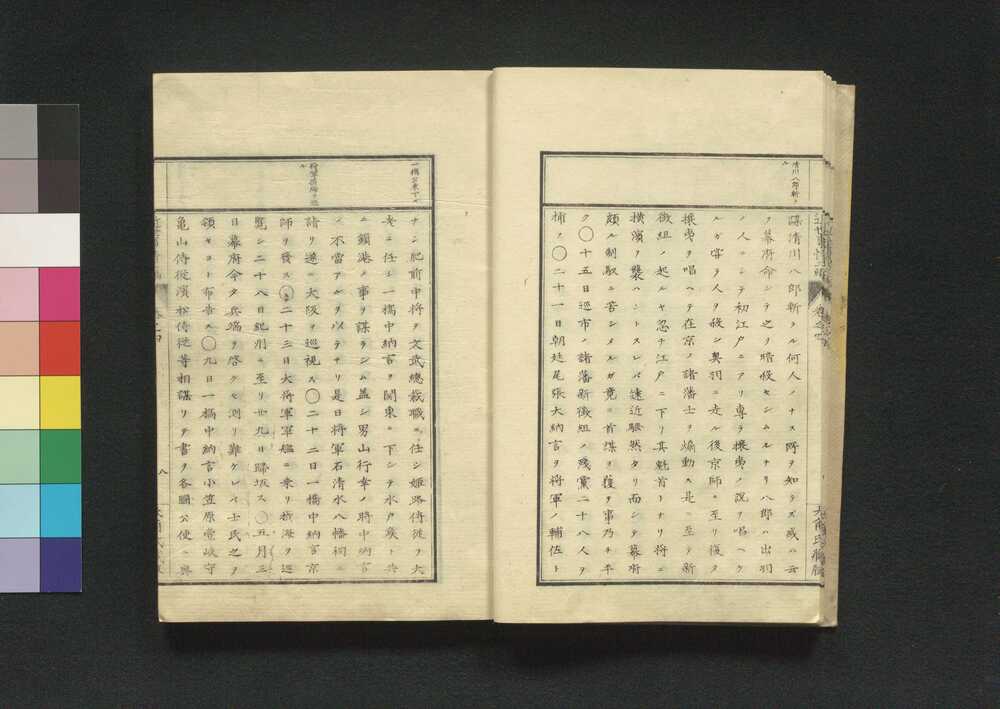 清川八郎斬ラ
ル
謀清川八郎斬ラル何人ノナス所ヲ知ラズ或ハ云
フ幕府命シテ之ヲ暗殺セシムルナリ八郎ハ出羽
ノ人ニシテ初江戸ニアリ専ラ攘夷ノ説ヲ唱ヘケ
ルガ嘗ヲ人ヲ殺シ奥羽ニ走ル後京師ニ至リ復タ
攘夷ヲ唱ヘテ在京ノ諸藩士ヲ煽動ス是ニ至テ新
徴組ノ起ルヤ忽チ江戸ニ下リ其魁首トナリ将ニ
横濱ヲ襲ハントスレバ遠近騒然タリ而シテ幕府
頗ル制馭ニ苦シメルガ竟ニ首謀ヲ獲ヲ事乃チ平
ク〇十五日巡市ノ諸藩新徴組ノ残黨二十八人ヲ
捕フ〇二十一日朝廷尾張大納言ヲ将軍ノ輔佐ト
一橋公東下ス
将軍摂海ヲ巡
ル
ナシ肥前中将ヲ文武總裁職ニ任シ姫路侍従ヲ大
老ニ任シ一橋中納言ヲ関東ニ下シテ水戸矦ト共
ニ鎖港ノ事ヲ謀ラシム蓋シ男山行幸ノ時中納言
ノ不當アルヲ以テナリ是日将軍石清水八幡祠ニ
詣リ遂ニ大阪ヲ巡視ス〇二十二日一橋中納言京
師ヲ發ス〇二十三日大将軍軍艦ニ乗リ摂海ヲ巡
覧シ二十八日紀州ニ至リ廿九日歸坂ス〇五月三
日幕府令タ兵端ヲ啓クモ測リ難ケレバ士民之ヲ
領セヨト布告ス〇九日一橋中納言小笠原壹岐守
亀山侍従濱松侍従等相謀リテ書ヲ各國公使ニ與
八